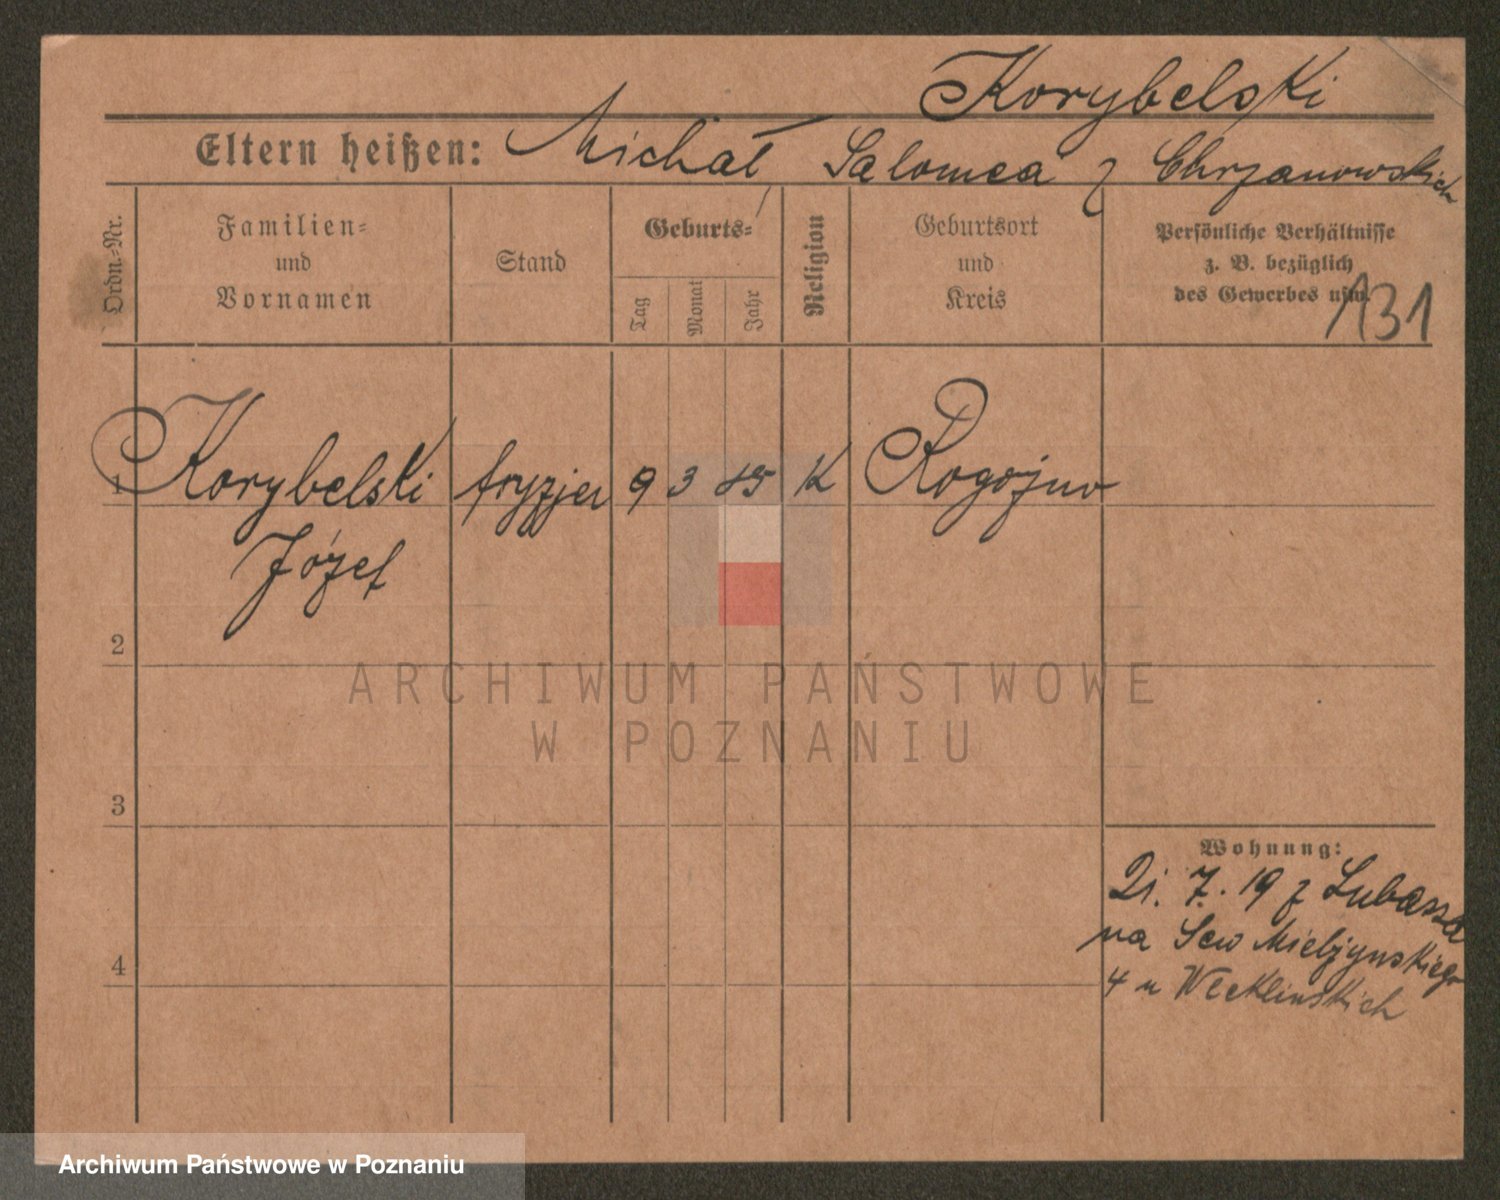 Korybelski
Eltern heißen: Michał Salomea z Chrzanowskich
Ordn.-Nr.
Familien-
und
Vornamen
Stand
Geburts-
Tag
Monat
Jahr
Religion
Geburtsort
und
Kreis
Persönliche Verhältnisse
z. B. bezüglich
des Gewerbes usw.
131
1 Korybelski fryzjer 9 3 85 K Rogoźno
Józef
2
3
4
ARCHIWUM PAŃSTWOWE
W POZNANIU
Wohnung:
21. 7. 19 z Lubassa
na Sew Mielżynskiego
4 u
Archiwum Państwowe w Poznaniu